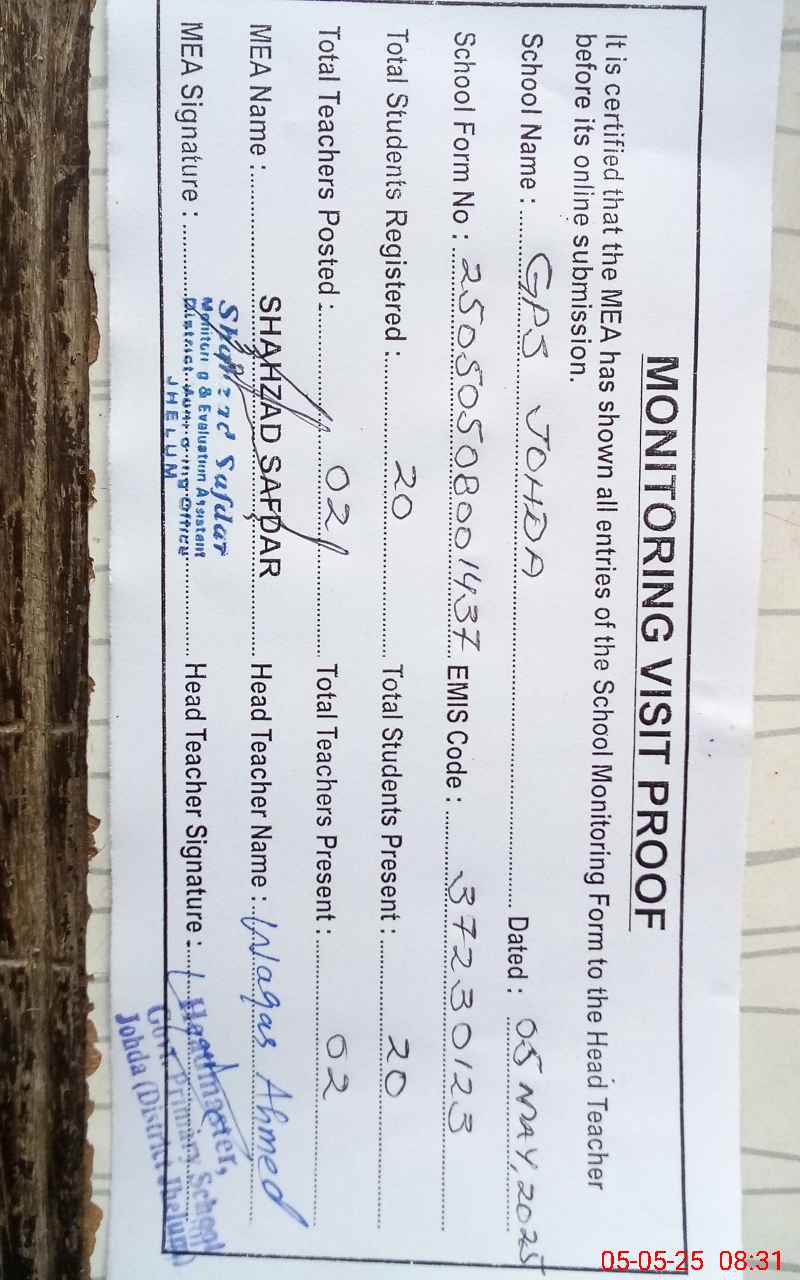 MONITORING VISIT PROOF
It is certified that the MEA has shown all entries of the School Monitoring Form to the Head Teacher
before its online submission.
School Name : GPS JOHDA Dated : 05 MAY, 2025
School Form No : 25050508001437 EMIS Code : 37230123
Total Students Registered : 20 Total Students Present : 20
Total Teachers Posted : 02 Total Teachers Present : 02
MEA Name : SHAHZAD SAFDAR Head Teacher Name : Waqas Ahmed
MEA Signature : Head Teacher Signature :
Shahzad Safdar
Monitoring & Evaluation Assistant
District Monitoring Office
JHELUM
Headmaster,
Govt. Primary School
Johda (District Jhelum)
05-05-25 08:31